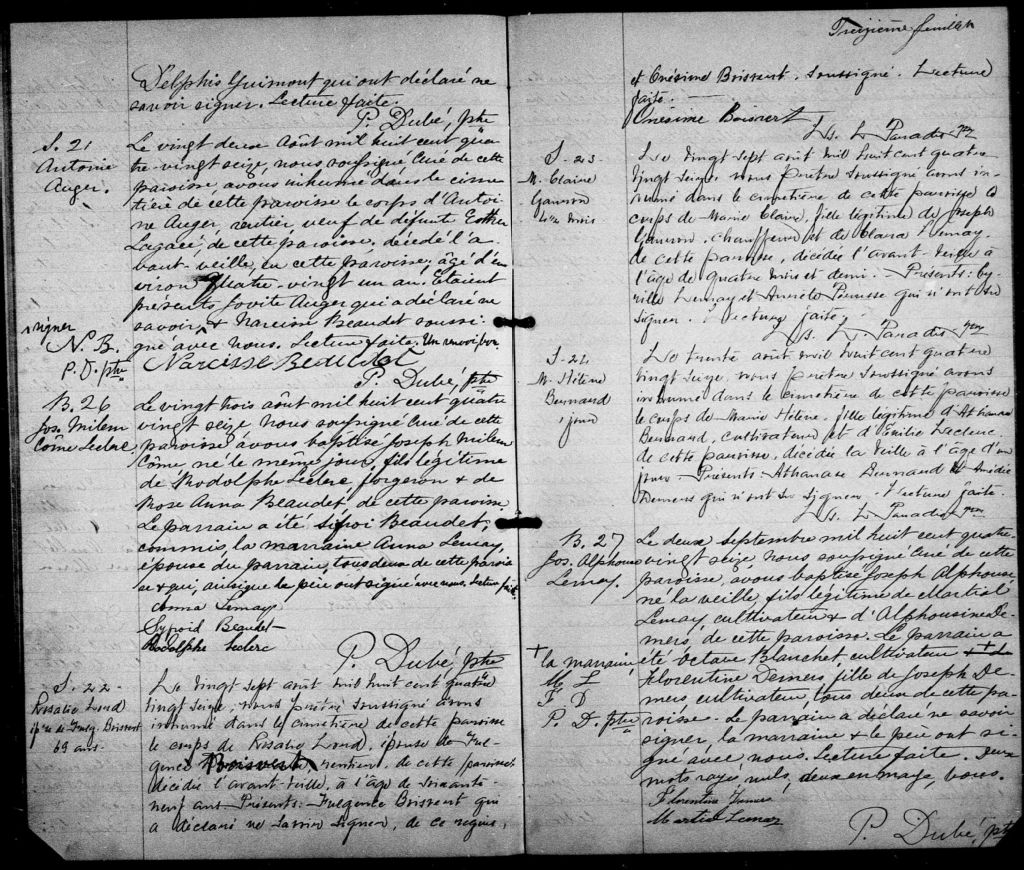 Delphis Guimont qui ont déclaré ne
savoir signer. Lecture faite.
P. Dubé, ptre
S. 21
Antoine
Auger.
Le vingt deux Août mil huit cent qua
tre-vingt seize, nous soussigné Curé de cette
paroisse, avons inhumé dans le cime
tière de cette paroisse le corps d'Antoi
ne Auger, rentier, veuf de défunte Esther
de cette paroisse, décédé l'a
vant-veille, en cette paroisse, âgé d'en
viron quatre-vingt un an. Étaient
présents Jovite Auger qui a déclaré ne
savoir & Narcisse Beaudet soussi-
gné avec nous. Lecture faite. Un renvoi bon.
signer
N. B.
P. D. ptre
Narcisse Beaudet
P. Dubé, ptre
B. 26
Jos. Milem
Côme Leclerc
Le vingt trois août mil huit cent quatre
vingt seize, nous soussigné Curé de cette
paroisse avons baptisé Joseph Milem
Côme, né le même jour, fils légitime
de Rodolphe Leclerc forgeron & de
Rose Anna Beaudet, de cette paroisse
Le parrain a été Sifroi Beaudet,
commis, la marraine Anna Lemay,
épouse du parrain, tous deux de cette parois
se & qui, ainsi que le père ont signé avec nous. Lecture faite.
Anna Lemay
Syfroid Beaudet
Rodolphe Leclerc
P. Dubé, ptre
S. 22
Rosalie Lord
épse de Fulg. Boisvert
69 ans
Le vingt sept août mil huit cent quatre
vingt seize, nous prêtre soussigné avons
inhumé dans le cimetière de cette paroisse
le corps de Rosalie Lord, épouse de Ful-
gence Boisvert rentier, de cette paroisse
décédée l'avant veille, à l'âge de soixante
neuf ans Présents: Fulgence Boisvert qui
a déclaré ne savoir signer, de ce requis,
Treizième feuillet
et Onésime Boisvert, soussigné. Lecture
faite.
Onésime Boisvert
Ls. L. Paradis ptre
S. 23
M. Claire
Gamron
4 1/2 mois
Le vingt sept août mil huit cent quatre
vingt seize nous prêtre soussigné avons in-
humé dans le cimetière de cette paroisse le
corps de Marie Claire, fille légitime de Joseph
Gamron, chauffeur et de Clara Lemay,
de cette paroisse, décédée l'avant-veille à
l'âge de quatre mois et demi. Présents: Cy-
rille Lemay et qui n'ont su
signer. Lecture faite.
Ls. L. Paradis ptre
S. 24
M. Hélène
Bernard
1 jour
Le trente août mil huit cent quatre
vingt seize, nous prêtre soussigné avons
inhumé dans le cimetière de cette paroisse
le corps de Marie Hélène, fille légitime d'Athanase
Bernard, cultivateur et d'Emilie Leclerc
de cette paroisse, décédée la veille à l'âge d'un
jour. Présents Athanase Bernard & Amédée
Demers qui n'ont su signer. Lecture faite.
Ls. L. Paradis ptre
B. 27
Jos. Alphonse
Lemay
Le deux Septembre mil huit cent quatre-
vingt seize, nous soussigné Curé de cette
paroisse, avons baptisé Joseph Alphonse,
né la veille fils légitime de Martial
Lemay, cultivateur & d'Alphonsine De-
mers, de cette paroisse. Le parrain a
été Octave Blanchet, cultivateur +
+ la marraine
M. L
F D
P. D. ptre
Florentine Demers, fille de Joseph De-
mers, cultivateur, tous deux de cette pa-
roisse. Le parrain a déclaré ne savoir
signer, la marraine & le père ont si-
gné avec nous. Lecture faite. Deux
mots rayés nuls, deux en marge, bons.
Florentine Demers
Martial Lemay
P. Dubé, ptre